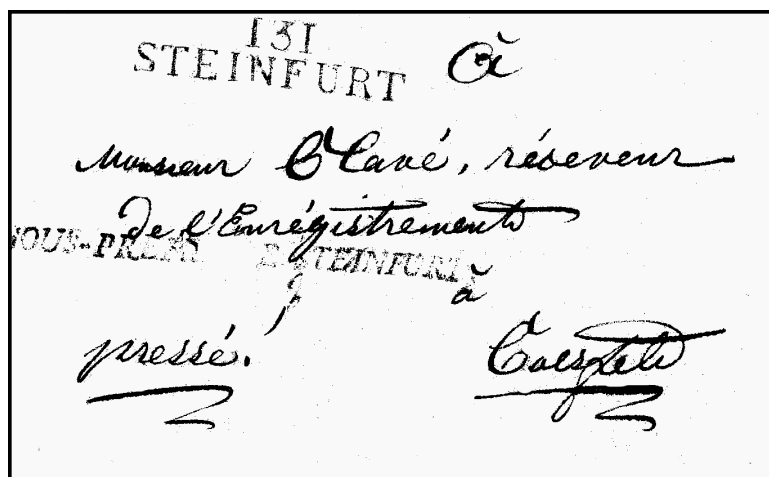 131
STEINFURT
À
Monsieur Clavé, réceveur
de l'Enrégistrement
SOUS-PRÉF STEINFURT
à
pressé. Coesfeld